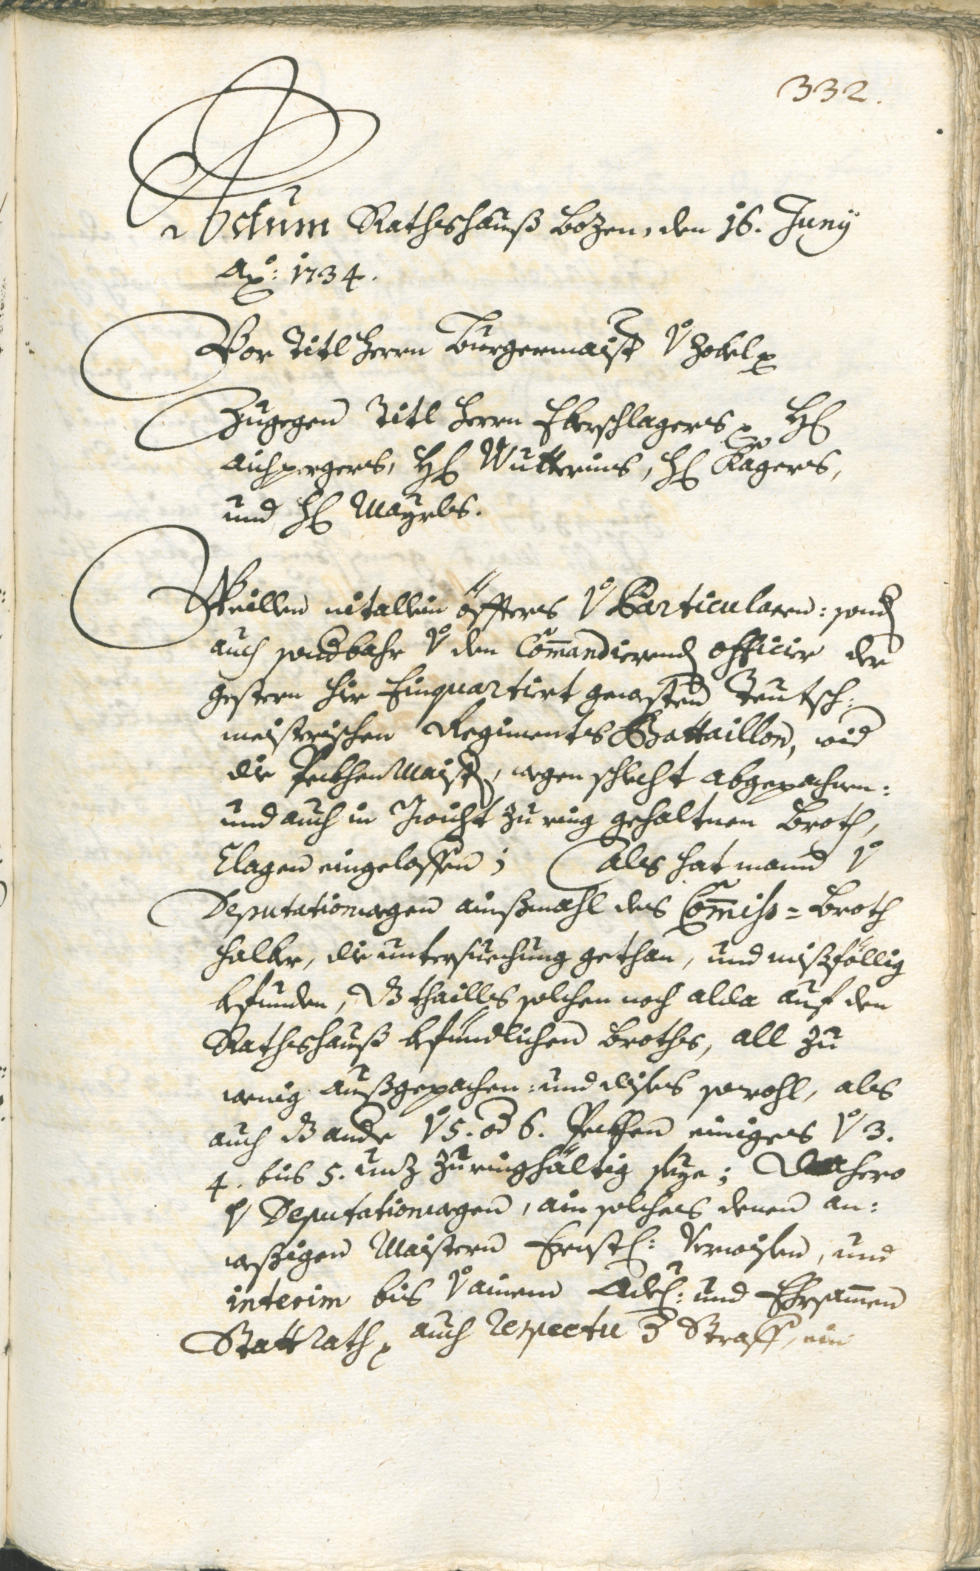 332.
Actum Rathshauß Bozen, den 16. Juny
Aō: 1734.
Vor Titl Herrn Burgermaistr v Zobel p
Zugegen Titl Herrn Eberschlagers p H
Aichpergers, H Wutterins, H Kagers,
und H Mayrls.
Weillen nit allein öffters v Particularn: sond
auch sondbahr v den Comandierend officier der
gestern hir Einquartirt gewesten Teutsch:
meisterischen Regiments Battaillon, wid
die Peckhen Maistr, wegen schlecht abgepachnen:
und auch in Gwicht zu ring gehaltnen Broth,
Clagen eingeloffen; Als hat mann v
Deputationwegen ainßmahl des Comiss=Broth
halber, die untersuechung gethan, und mißföllig
befunden, dß thailß solchen noch alda auf den
Rathshauß befündlichen Broths, all zu
wenig außgepachen: und dises sowohl, als
auch dß andr v 5. od 6. Peckhen einiges v 3.
4. bis 5. unz zu ringhältig seye; Dahero
v Deputationwegen, ain solches denen an:
weßigen Maistern Ernstl: Verwisen, und
interim bis v ainem Adel: und Ehrsamen
Statt Rath p auch respectu d Straff, ein